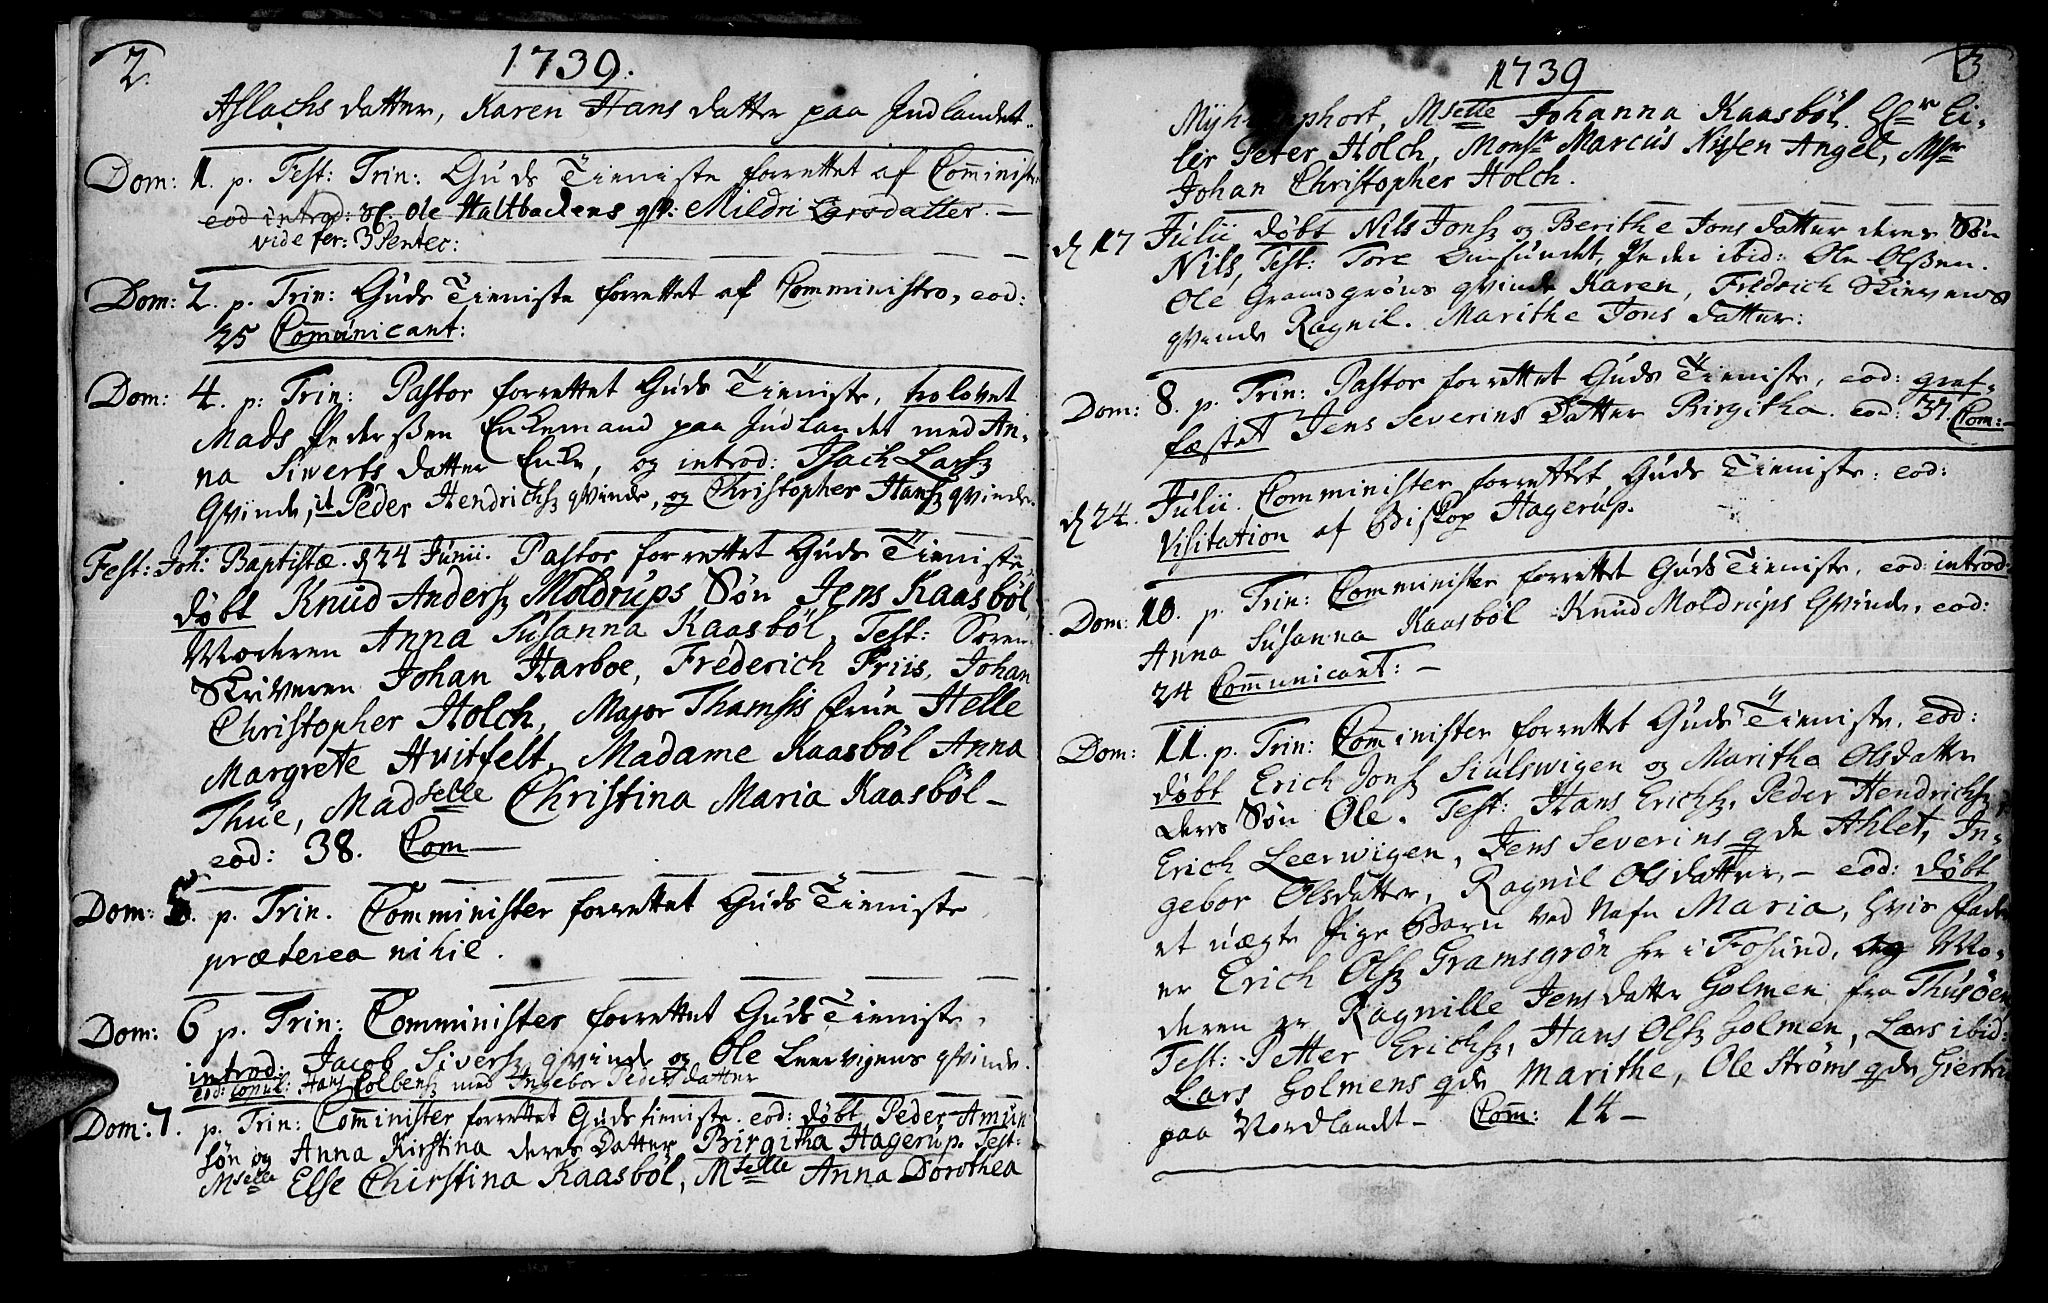 2.
1739.
Aslachs datter, Karen Hans datter paa Indlandet.
Dom: 1. p. Fest: Trin: Guds Tieniste forrettet af Comminister
eod introd: Sl. Ole Haltbackens qv: Mildri Larsdatter. —
vide fer: 3 Pentec:
Dom: 2. p. Trin: Guds Tieniste forrettet af Comministro, eod:
25 Communicant:
Dom: 4. p: Trin: Pastor forrettet Guds Tieniste, trolovet
Mads Pederssen Enkemand paa Indlandet med An-
na Siverts datter Enke, og introd: Isach Larss
Qvinde, it Peder Hendrichss qvinde, og Christopher Hanss qvinde.
Fest: Joh: Baptistæ. d 24 Junii. Pastor forrettet Guds Tieniste,
døbt Knud Anderss Moldrups Søn Jens Kaasbøl,
Moderen Anna Susanna Kaasbøl, Test: Soren-
Skriveren Johan Harboe, Frederich Friis, Johan
Christopher Holch, Major Thamsis frue Helle
Margrete Hvitfelt, Madame Kaasbøl Anna
Thue, Madselle Christina Maria Kaasbøl —
eod: 38. Com —
Dom: 5. p. Trin. Comminister forrettet Guds Tieniste
præterea nihil.
Dom: 6 p. Trin: Comminister forrettet Guds Tieniste.
introd: Jacob Siverss qvinde og Ole Leervigens qvinde.
eod: copul: Hans Colbenss med Ingebor Peders datter
Dom: 7. p. Trin: Comminister forrettet Guds tieniste. eod: døbt Peder Amun
søn og Anna Kirstina deres Datter Birgitha Hagerup. Test:
Mselle Else Chirstina Kaasbøl, Mselle Anna Dorothea
3
1739
Johanna Kaasbøl. Hr Ei-
ler Peter Holch, Monsr Marcus Nissen Angel, Msr
Johan Christopher Holch.
d 17 Julii døbt Nils Jonss og Berithe Jons datter deres Søn
Nils, Test: Tore Peder ibid: Ole Olssen.
Ole Gramsgrøns qvinde Karen, Fredrich Skrevens
qvinde Ragnil. Marithe Jons datter:
Dom: 8. p. Trin: Pastor forrettet Guds Tieniste, eod: graf-
fæstet Jens Severins Datter Birgitha. eod: 37. Com: —
d 24. Julii. Comminister forrettet Guds Tieniste. eod:
Visitation af Biskop Hagerup.
Dom: 10. p. Trin: Comminister forrettet Guds Tieniste. eod: introd:
Anna Susanna Kaasbøl Knud Moldrups Qvinde. eod:
24 Communicant: —
Dom: 11. p. Trin: Comminister forrettet Guds Tieniste. eod:
døbt Erich Jonss Siulswigen og Marithe Olsdatter
deres Søn Ole. Test: Hans Erichss, Peder Hendrichss
Erich Leerwigen, Jens Severins qde Ahlet, In-
gebor Olsdatter, Ragnil Olsdatter, — eod: døbt
et uægte Pige Barn ved Nafn Maria, hvis fader
er Erich Olss Gramsgrøn her i Fosund, og Mo-
deren er Ragnille Jens datter Golmen fra Thusøen
Test: Petter Erichss, Hans Olss Golmen, Lars ibid:
Lars Golmens qde Marithe, Ole Strøms qde Giertrud
paa Nordlandet — Com: 14 —